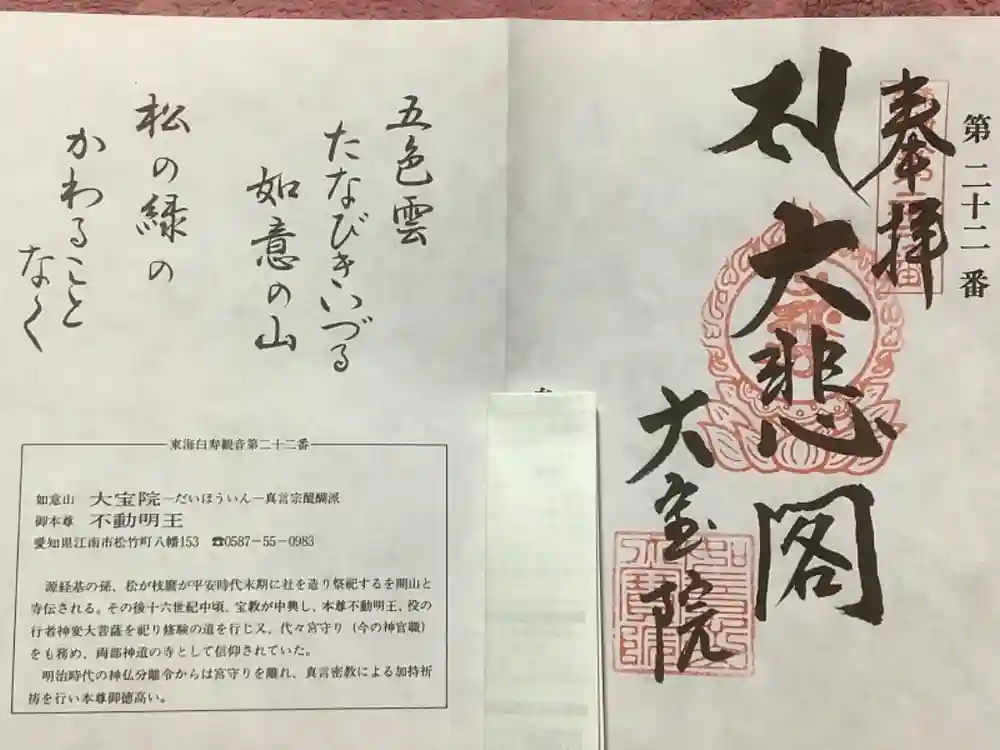 第二十二番
奉拝
大悲閣
大宝院
五色雲
たなびきいづる
如意の山
松の緑の
かわること
なく
東海白寿観音第二十二番
如意山 大宝院―だいほういん―真言宗醍醐派
御本尊 不動明王
愛知県江南市松竹町八幡153 ☎0587-55-0983
源経基の孫、松が枝麿が平安時代末期に社を造り祭祀するを開山と
寺伝される。その後十六世紀中頃、宝教が中興し、本尊不動明王、役の
行者神変大菩薩を祀り修験の道を行じ又、代々宮守り（今の神官職）
をも務め、両部神道の寺として信仰されていた。
明治時代の神仏分離令からは宮守りを離れ、真言密教による加持祈
祷を行い本尊御徳高い。